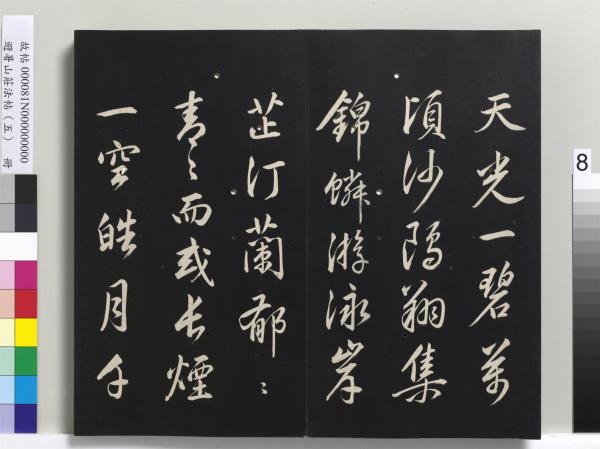 天光一碧萬
頃沙鷗翔集
錦鱗游泳岸
芷汀蘭郁〻
青〻而或長煙
一空皓月千
故帖 000081N000000000
避暑山莊法帖(五) 冊
8